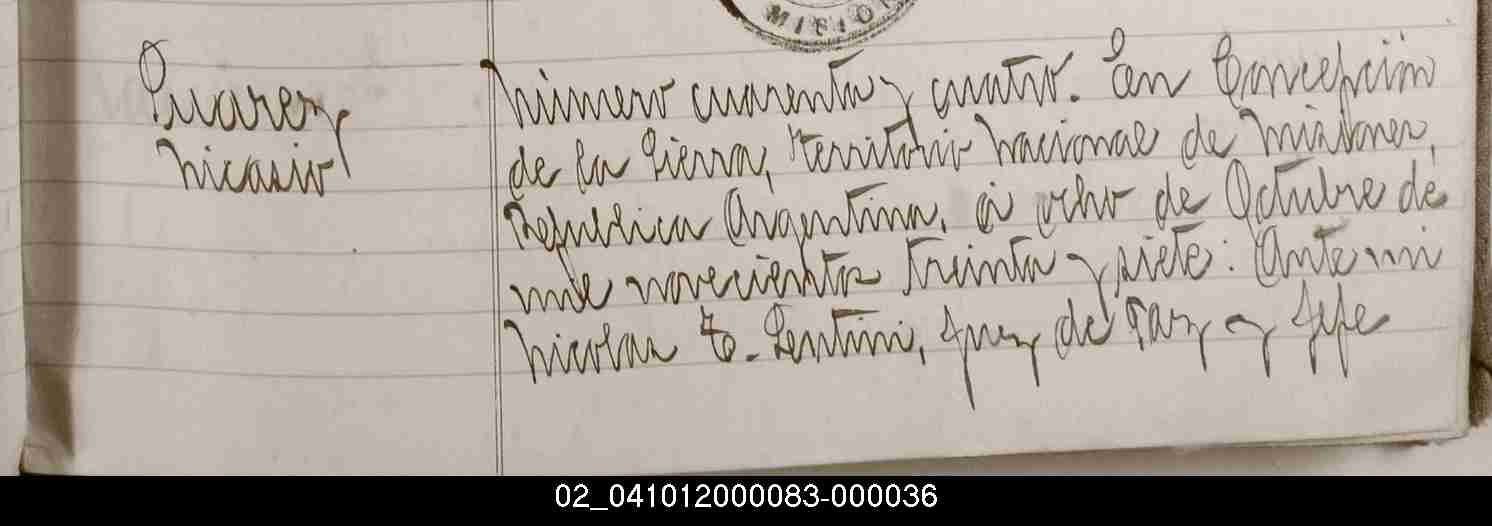 MISION
Suarez
Nicasio
Número cuarenta y cuatro. En Concepción
de la Sierra, territorio Nacional de Misiones,
República Argentina, á ocho de Octubre de
mil novecientos treinta y siete: Ante mi
Nicolas T. Lentini, Juez de Paz y Jefe
02_041012000083-000036